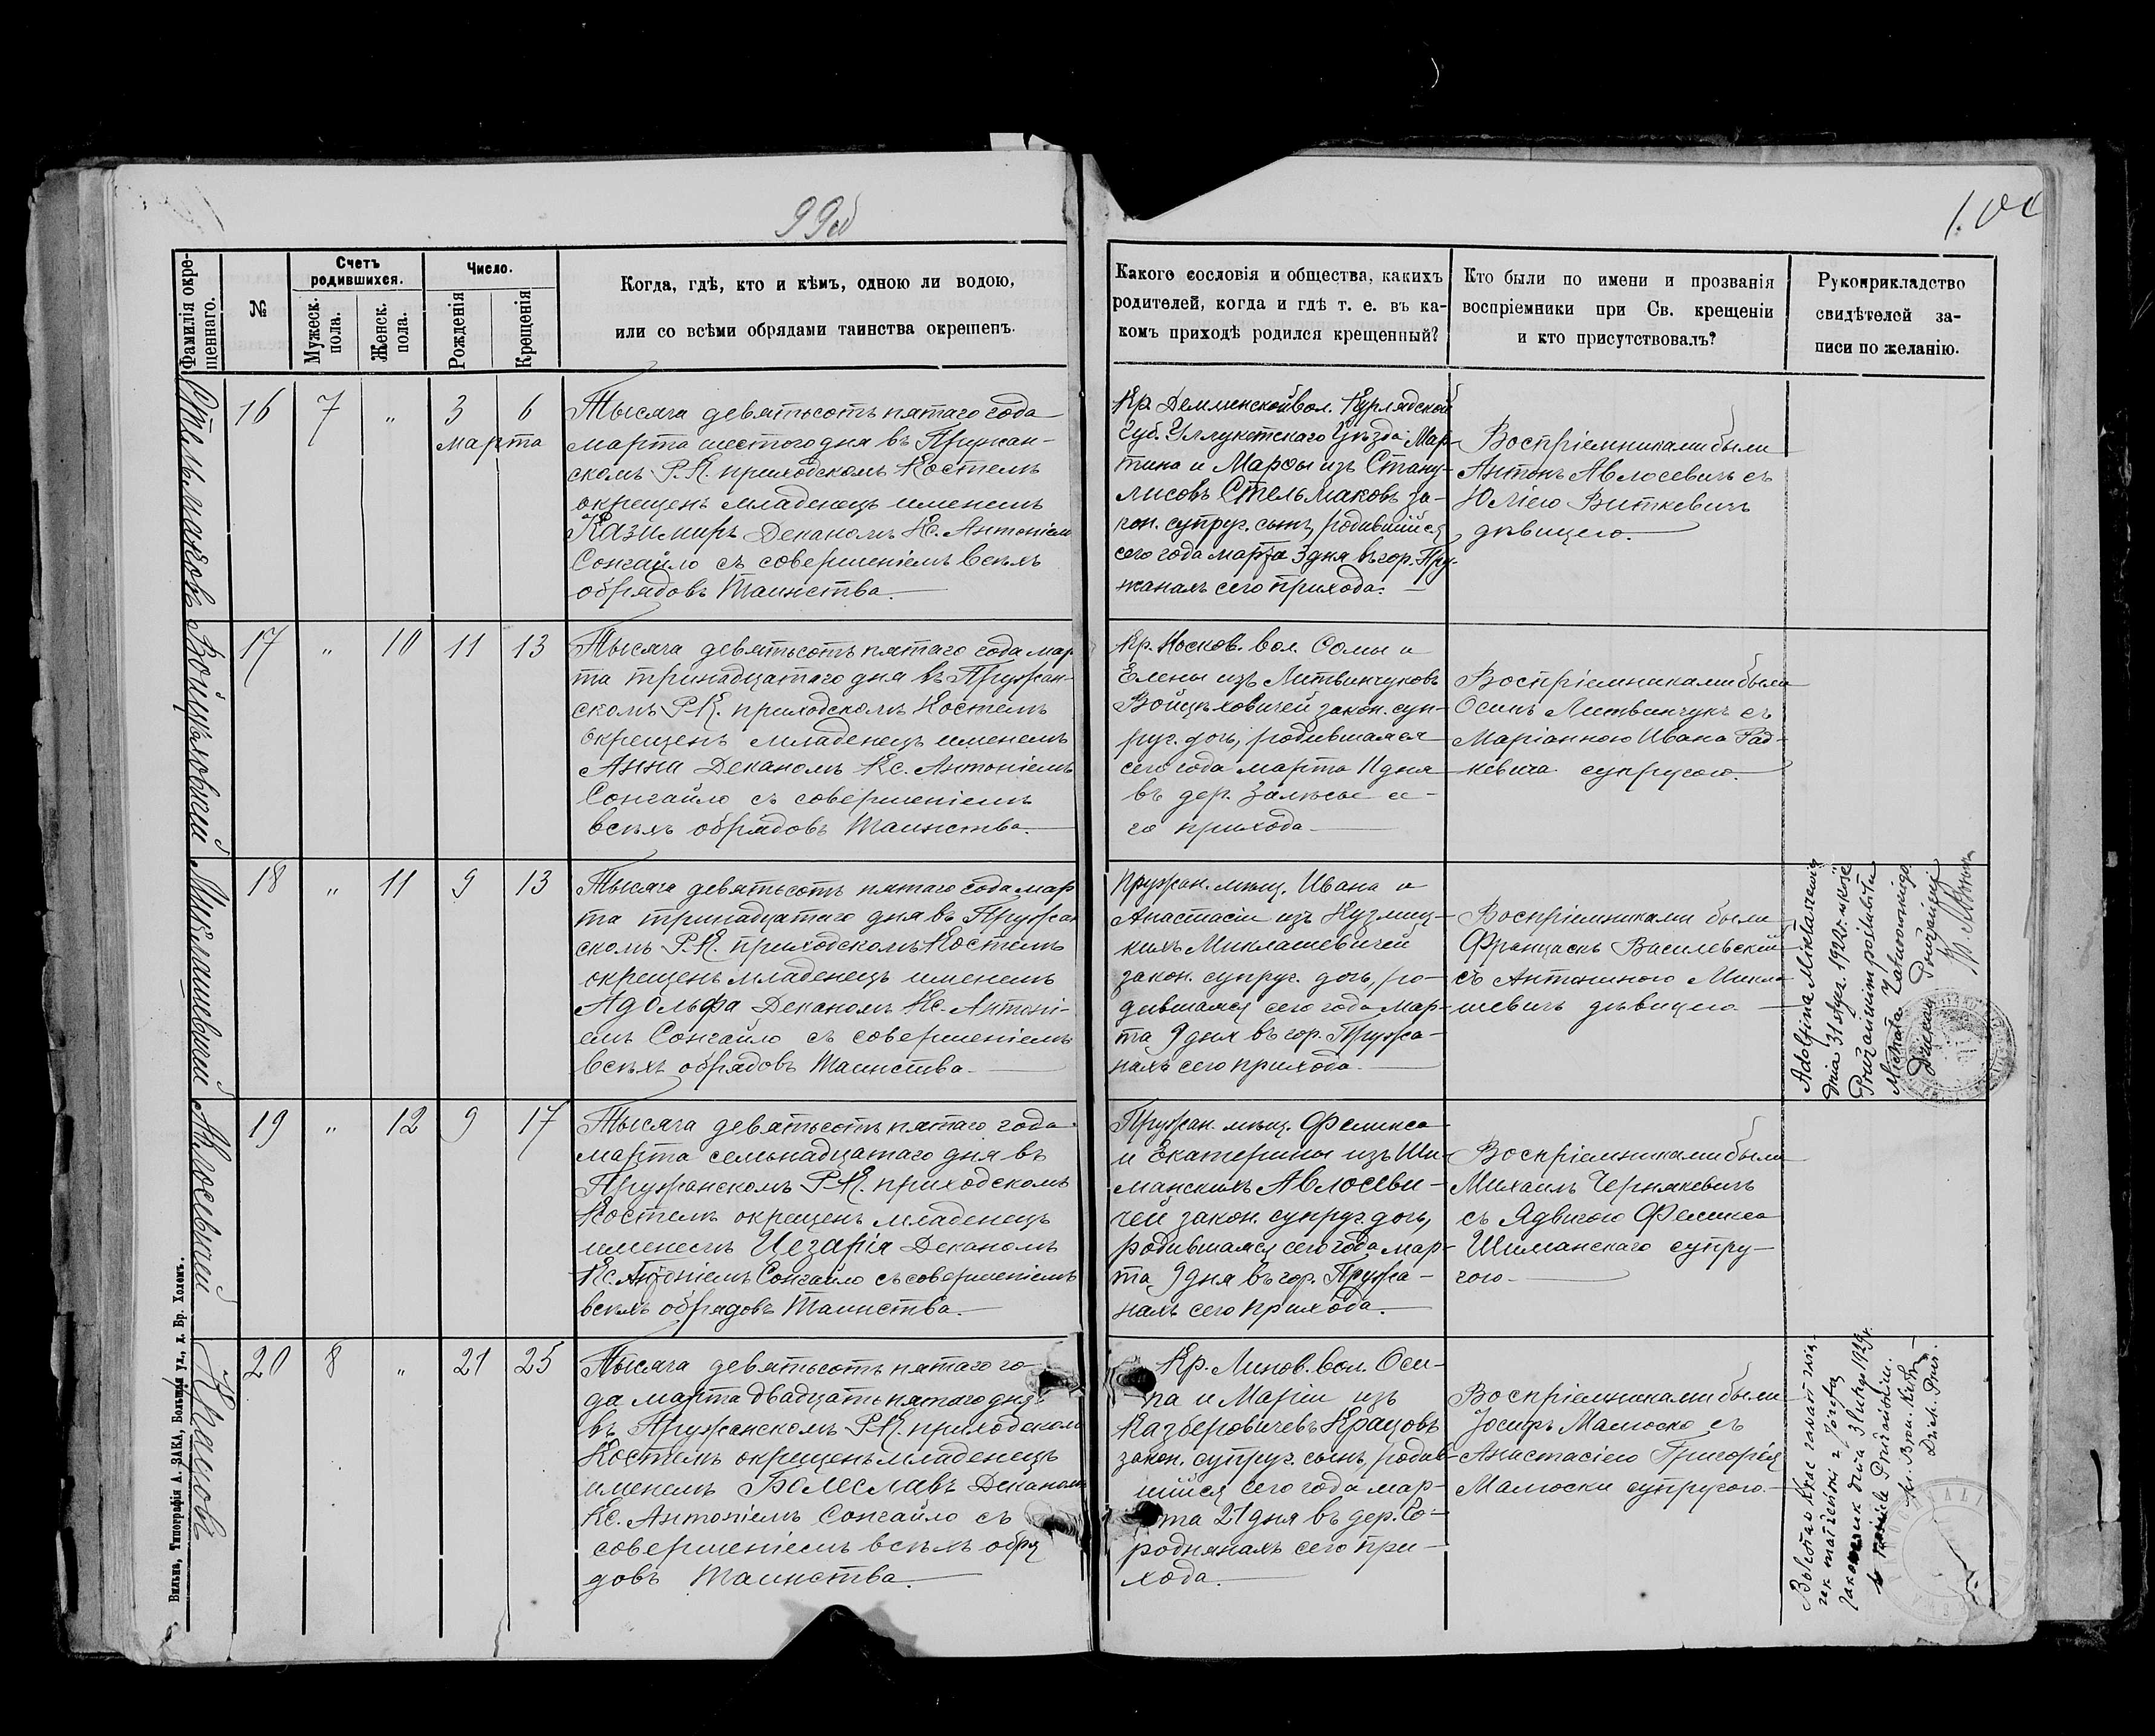 99об
100
Фамилія окре-
щеннаго.
№
Счетъ
родившихся.
Мужеск.
пола.
Женск.
пола.
Число.
Рожденія
Крещенія
Когда, гдѣ, кто и кѣмъ, одною ли водою,
или со всѣми обрядами таинства окрещенъ.
Какого сословія и общества, какихъ
родителей, когда и гдѣ т. е. въ ка-
комъ приходѣ родился крещенный?
Кто были по имени и прозванія
воспріемники при Св. крещеніи
и кто присутствовалъ?
Рукоприкладство
свидѣтелей за-
писи по желанію.
Стельмаковъ
16
7
"
3
6
марта
Тысяча девятьсотъ пятаго года
марта шестого дня въ Пружан-
скомъ Р.К. приходскомъ Костелѣ
окрещенъ младенецъ именемъ
Казимиръ Деканомъ Кс. Антоніемъ
Сонгайло съ совершеніемъ всѣхъ
обрядовъ Таинства.
Кр. Демменской вол. Курляндской
Губ. Иллукстскаго Уѣзда Мар-
тина и Марѳы изъ Стану-
лисовъ Стельмаковъ за-
кон. супруг. сынъ, родившійся
сего года марта 3 дня въ гор. Пру-
жанахъ сего прихода.
Воспріемниками были
Антонъ Авлосевичъ съ
Юліею Виткевичъ
дѣвицею.
Войцѣховичей
17
"
10
11
13
Тысяча девятьсотъ пятаго года мар
та тринадцатаго дня въ Пружан-
скомъ Р-К. приходскомъ Костелѣ
окрещенъ младенецъ именемъ
Анна Деканомъ Кс. Антоніемъ
Сонгайло съ совершеніемъ
всѣхъ обрядовъ Таинства.
Кр. Носков. вол. Ѳомы и
Елены изъ Литвинчуковъ
Войцѣховичей закон. суп-
руг. дочь, родившаяся
сего года марта 11 дня
въ дер. Залѣсье се-
го прихода
Воспріемниками были
Осипъ Литвинчукъ съ
Маріанною Ивана Рад-
кевича супругою.
Миклашевичей
18
"
11
9
13
Тысяча девятьсотъ пятаго года мар
та тринадцатаго дня въ Пружан
скомъ Р.К. приходскомъ Костелѣ
окрещенъ младенецъ именемъ
Адольфа Деканомъ Кс. Антоні-
емъ Сонгайло съ совершеніемъ
всѣхъ обрядовъ Таинства.
Пружан. мѣщ. Ивана и
Анастасіи изъ Кузмиц-
кихъ Миклашевичей
закон. супруг. дочь, ро-
дившаяся сего года мар-
та 9 дня въ гор. Пружа-
нахъ сего прихода.
Воспріемниками были
Францискъ Василевскій
съ Антониною Микла-
шевичъ дѣвицею.
Adolfina Miklaszewicz
dnia 31 stycz. 1922 r. w kośc.
Prużańskim poślubiła
Michała
Dziekan Prużański
Авлосевичей
19
"
12
9
17
Тысяча девятьсотъ пятаго года
марта семьнадцатаго дня въ
Пружанскомъ Р-К. приходскомъ
Костелѣ окрещенъ младенецъ
именемъ Цезарія Деканомъ
Кс. Антоніемъ Сонгайло съ совершеніемъ
всѣхъ обрядовъ Таинства.
Пружан. мѣщ. Феликса
и Екатерины изъ Ши-
манскихъ Авлосеви-
чей закон. супруг. дочь,
родившаяся сего года мар-
та 9 дня въ гор. Пружа-
нахъ сего прихода.
Воспріемниками были
Михаилъ Чернякевичъ
съ Ядвигою Феликса
Шиманскаго супру-
гою.
Крацовъ
20
8
"
21
25
Тысяча девятьсотъ пятаго го-
да марта двадцать пятаго дня
въ Пружанскомъ Р-К. приходскомъ
Костелѣ окрещенъ младенецъ
именемъ Болеславъ Деканомъ
Кс. Антоніемъ Сонгайло съ
совершеніемъ всѣхъ обря
довъ Таинства.
Кр. Линов. вол. Оси-
па и Маріи изъ
Казберовичевъ Крацовъ
закон. супруг. сынъ, родив-
шійся сего года мар-
та 21 дня въ дер. Го-
роднянахъ сего при-
хода.
Воспріемниками были
Іосифъ Малюско съ
Анастасіею Григорія
Малюски супругою.
Bolesław Krac zawarł zwią-
zek małżeński z Józefą
dnia 3 lutego 1929 r.
w kościele Prużańskim.
Вильно, Типографія А. ЗАКА, Большая ул., д. Бр. Холемъ.